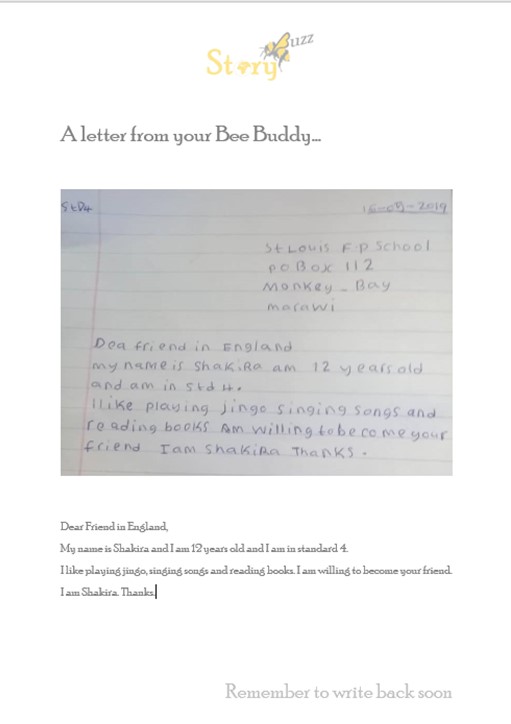 Story Buzz
A letter from your Bee Buddy...
Std4 16-05-2019
St Louis F.P School
po Box 112
Monkey - Bay
marawi
Dea friend in England
my name is ShakiRa am 12 years old
and am in std 4.
I like playing jingo singing songs and
reading books Am willing to become your
friend I am ShakiRa Thanks.
Dear Friend in England,
My name is Shakira and I am 12 years old and I am in standard 4.
I like playing jingo, singing songs and reading books. I am willing to become your friend.
I am Shakira. Thanks.
Remember to write back soon